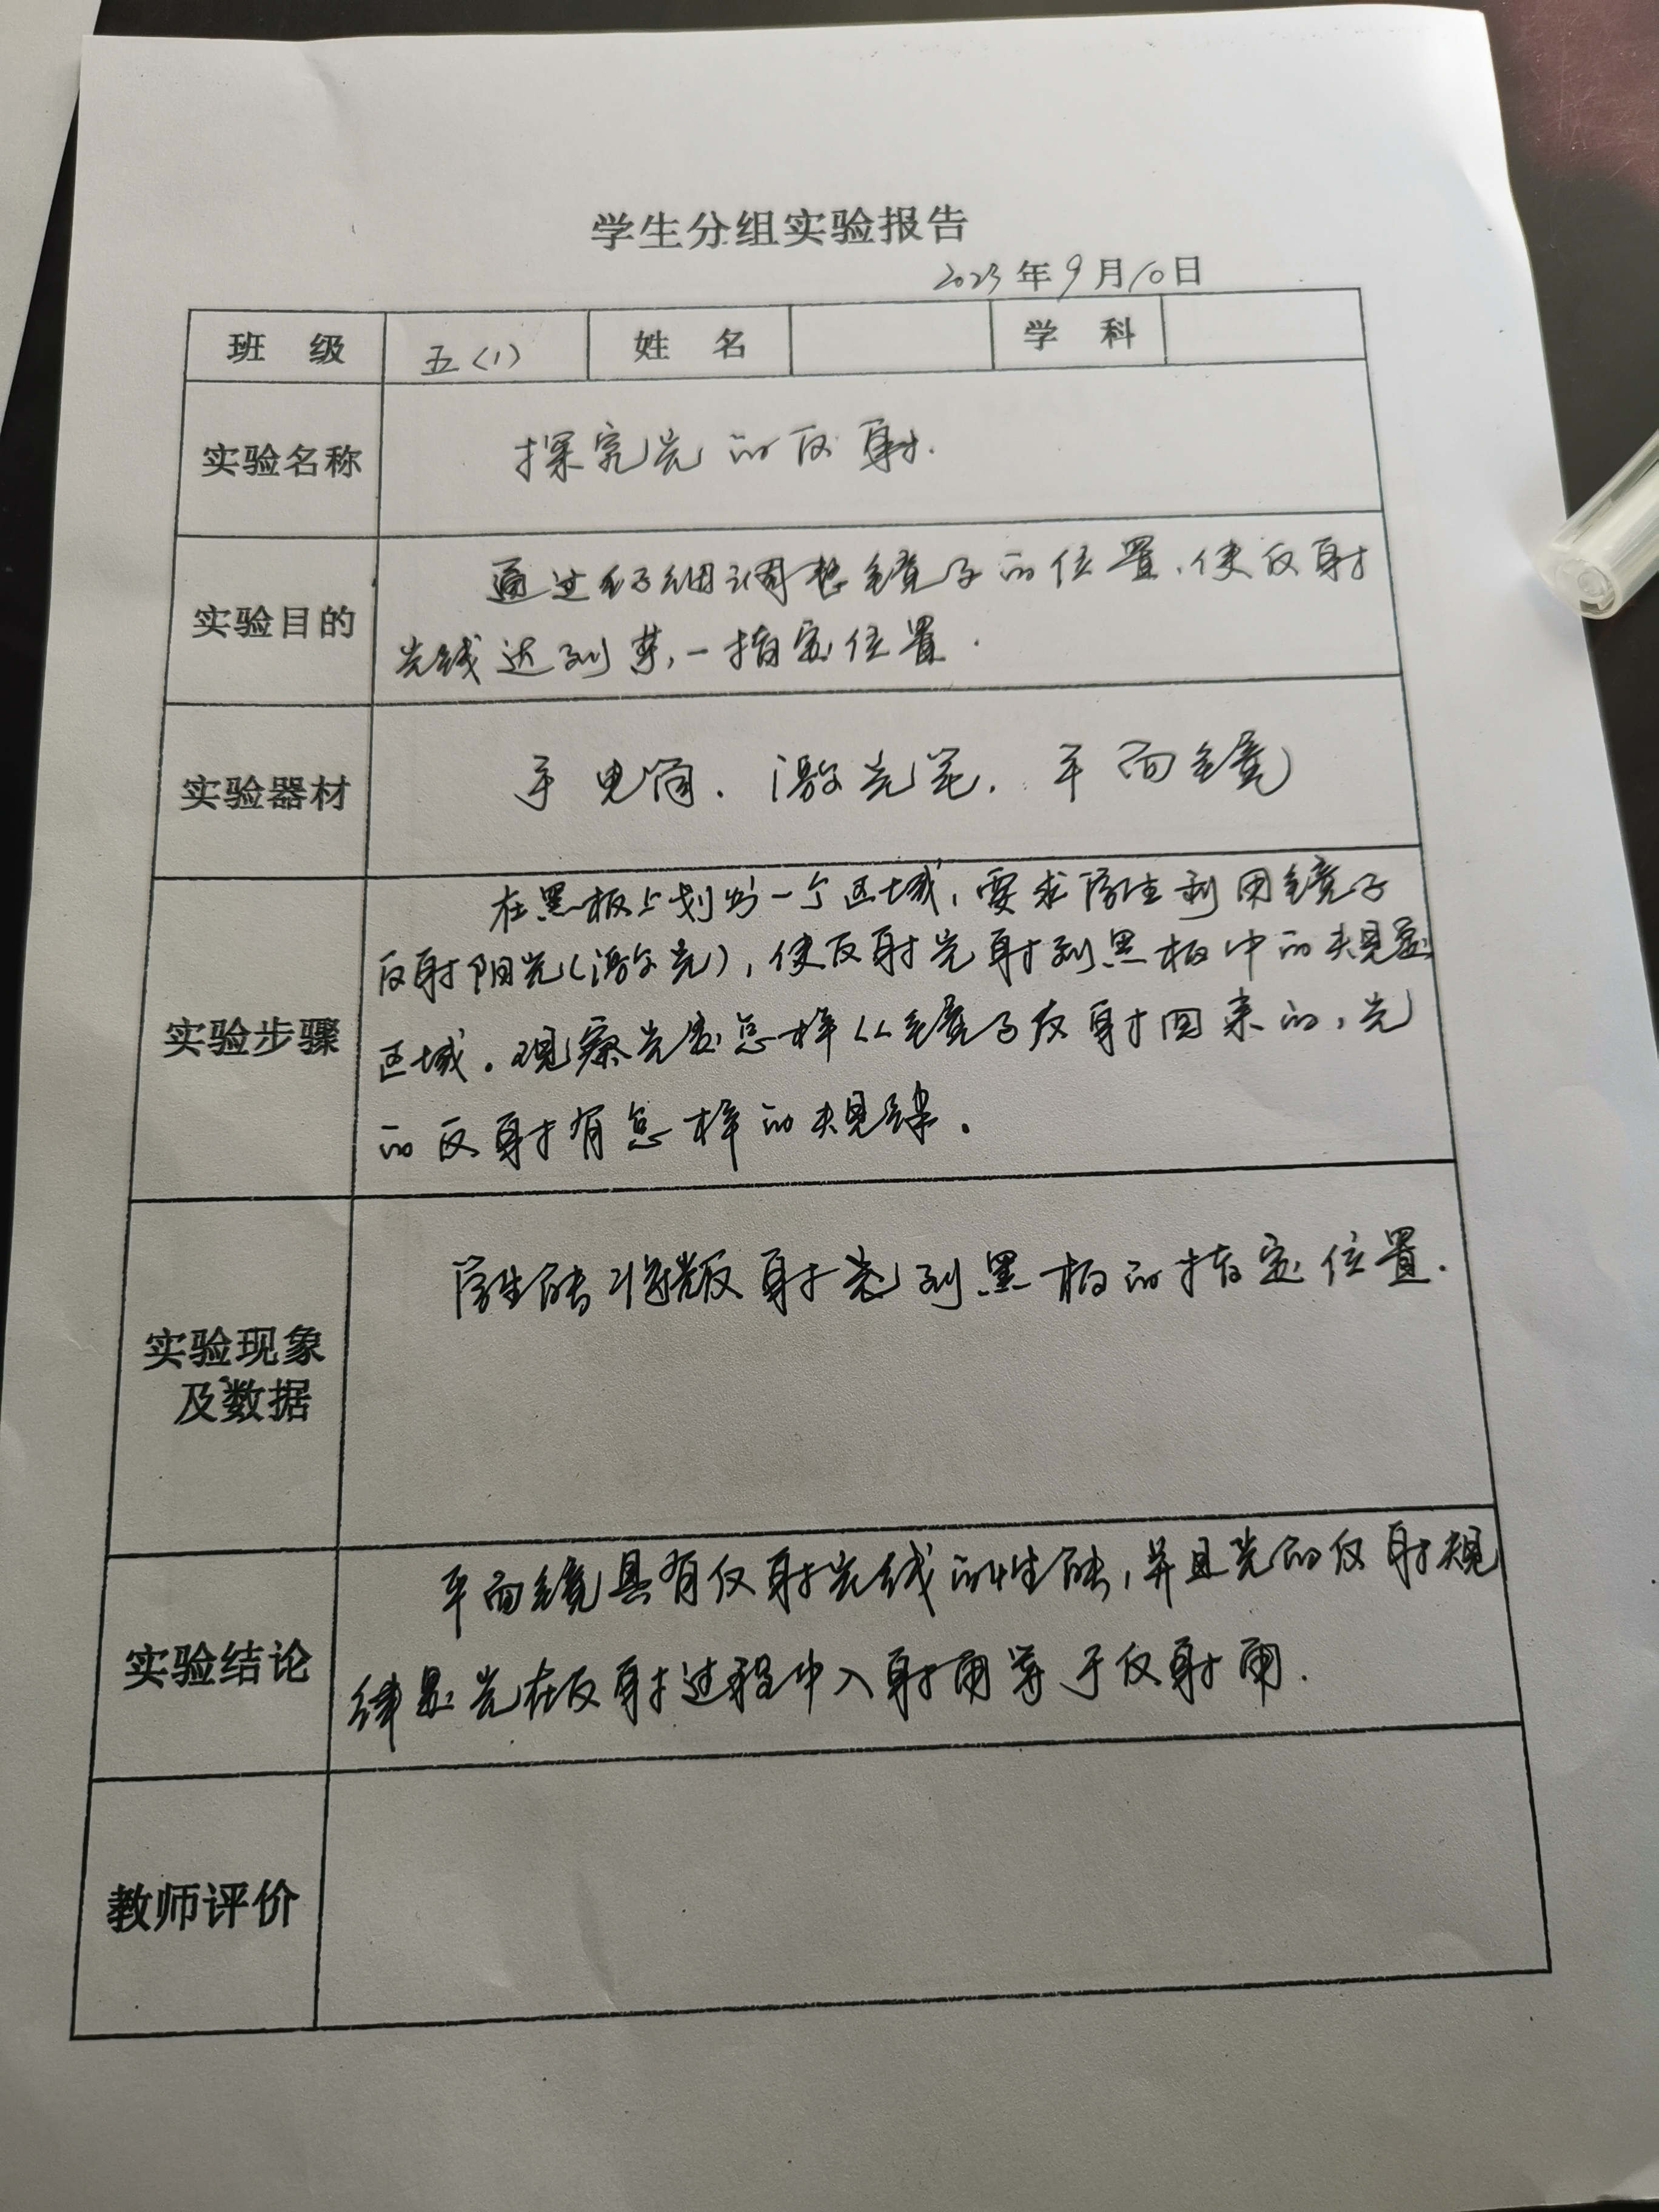 学生分组实验报告
2023年9月10日
班级 五(1) 姓名 学科
实验名称 探究光的反射.
实验目的 通过仔细调整镜子的位置,使反射
光线达到某一指定位置.
实验器材 手电筒. 激光笔. 平面镜
在黑板上划出一个区域,要求学生利用镜子
反射阳光(激光),使反射光射到黑板中的规定
实验步骤 区域。观察光是怎样从镜子反射回来的,光
的反射有怎样的规律。
学生能将 反射光到黑板的指定位置.
实验现象
及数据
平面镜具有反射光线的性能,并且光的反射规
实验结论 律是光在反射过程中入射角等于反射角.
教师评价